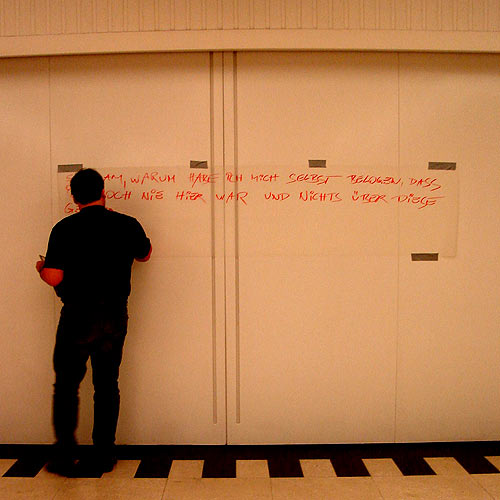 WARUM HABE ICH MICH SELBST BELOGEN, DASS
NOCH NIE HIER WAR UND NICHTS ÜBER DIESE